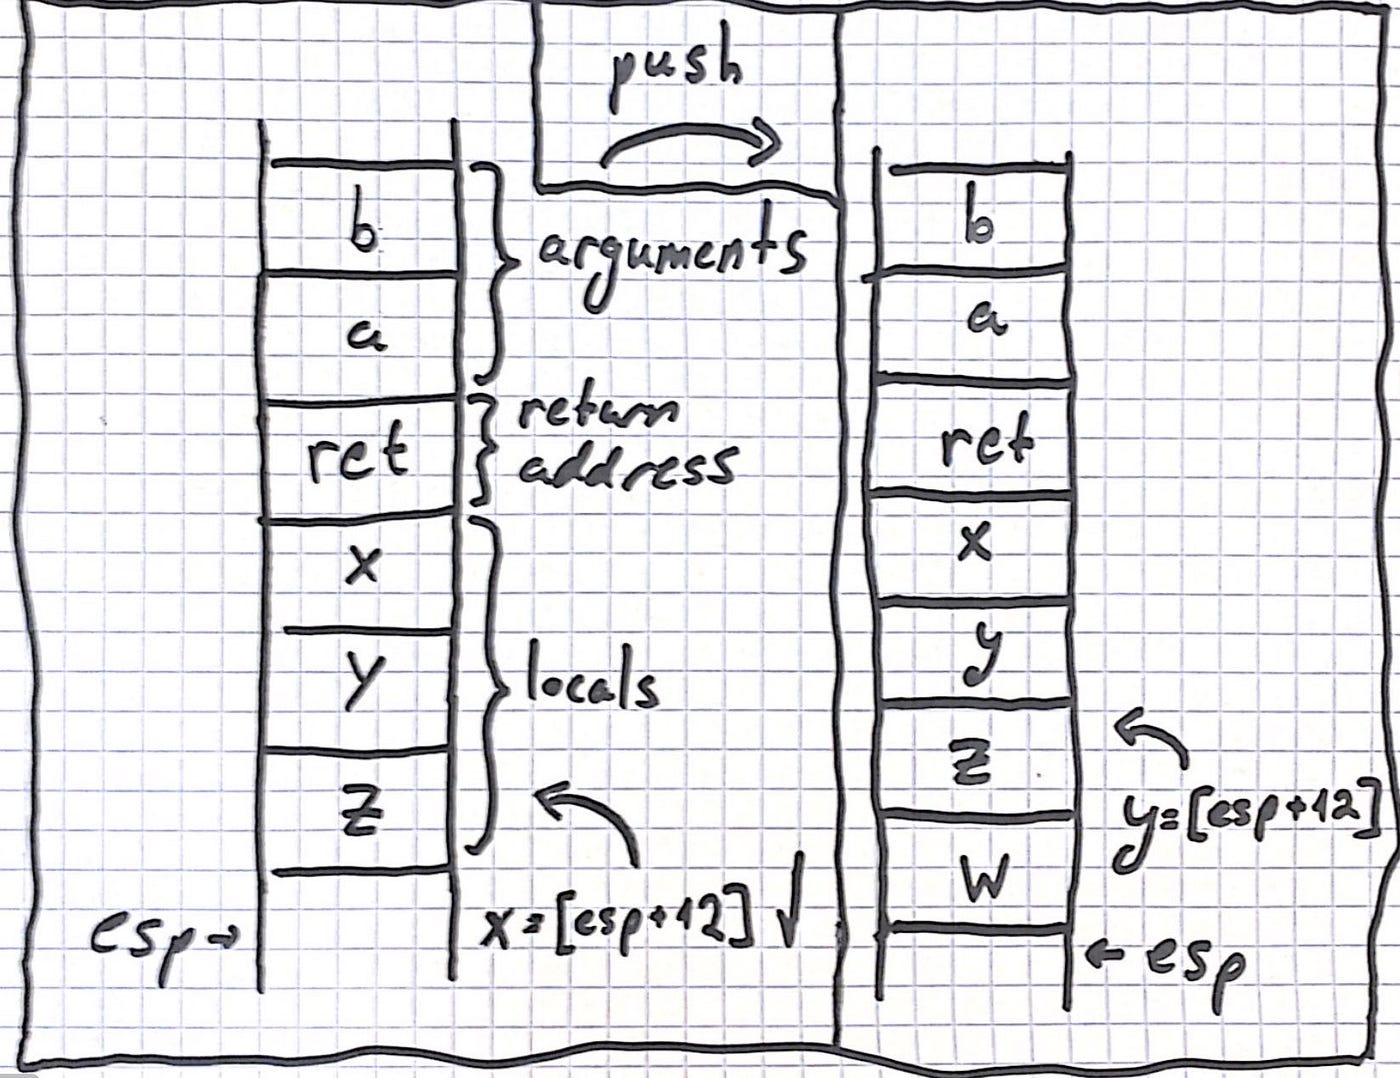 push
b
a
ret
x
y
z
arguments
return
address
locals
esp→
x=[esp+12] ✓
b
a
ret
x
y
z
w
y=[esp+12]
← esp